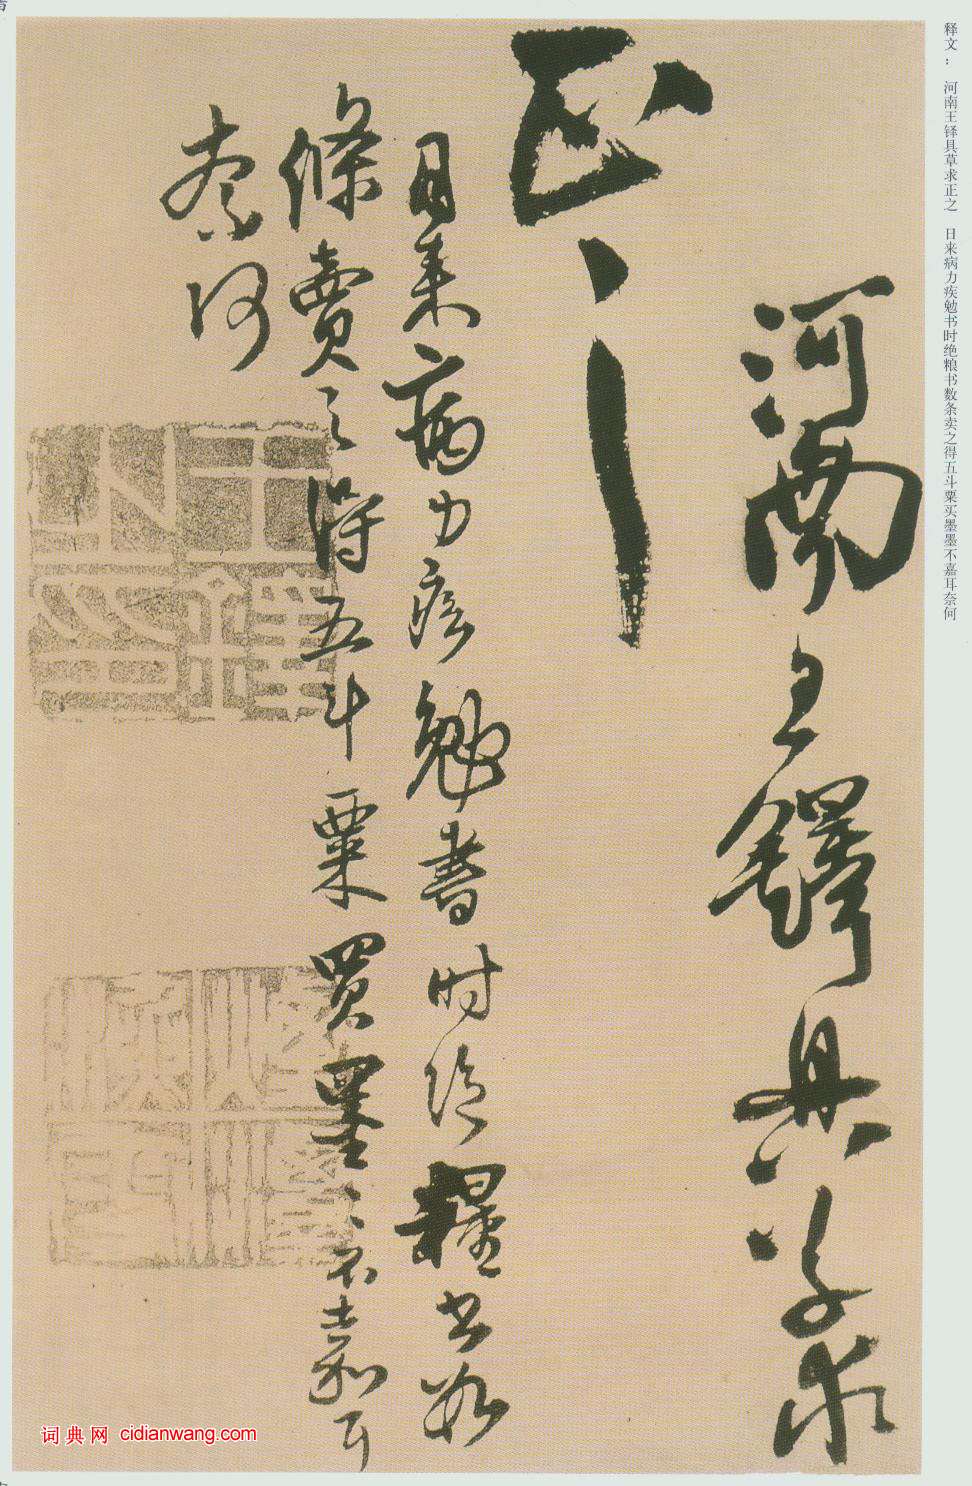 释文： 河南王铎具草求正之 日来病力疾勉书时绝粮书数条卖之得五斗粟买墨墨不嘉耳奈何
河南王鐸具草求
正之
日来病力疾勉書时绝糧书数
條賣之得五斗粟買墨墨不嘉耳
奈何
王鐸之印
词典网 cidianwang.com